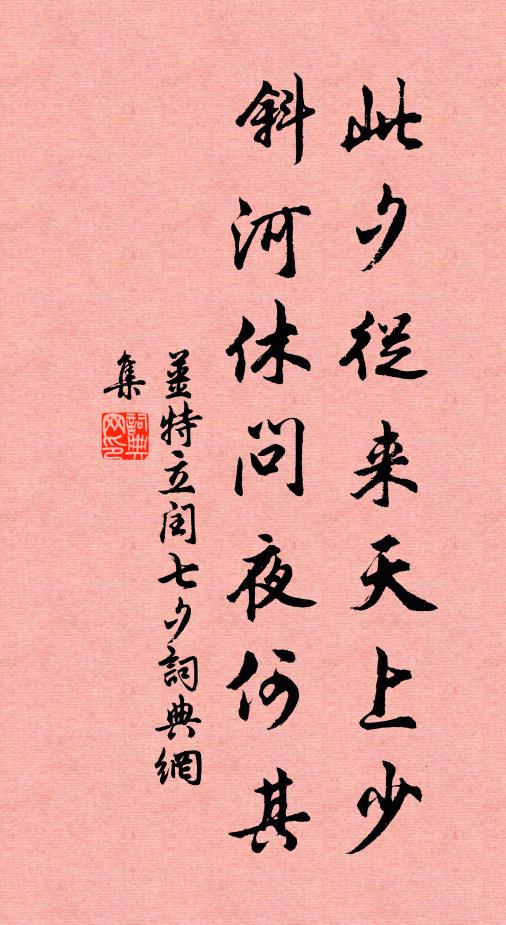 此夕從来天上少
斜河休問夜何其
姜特立閏七夕詞典網
集
詞典
网印